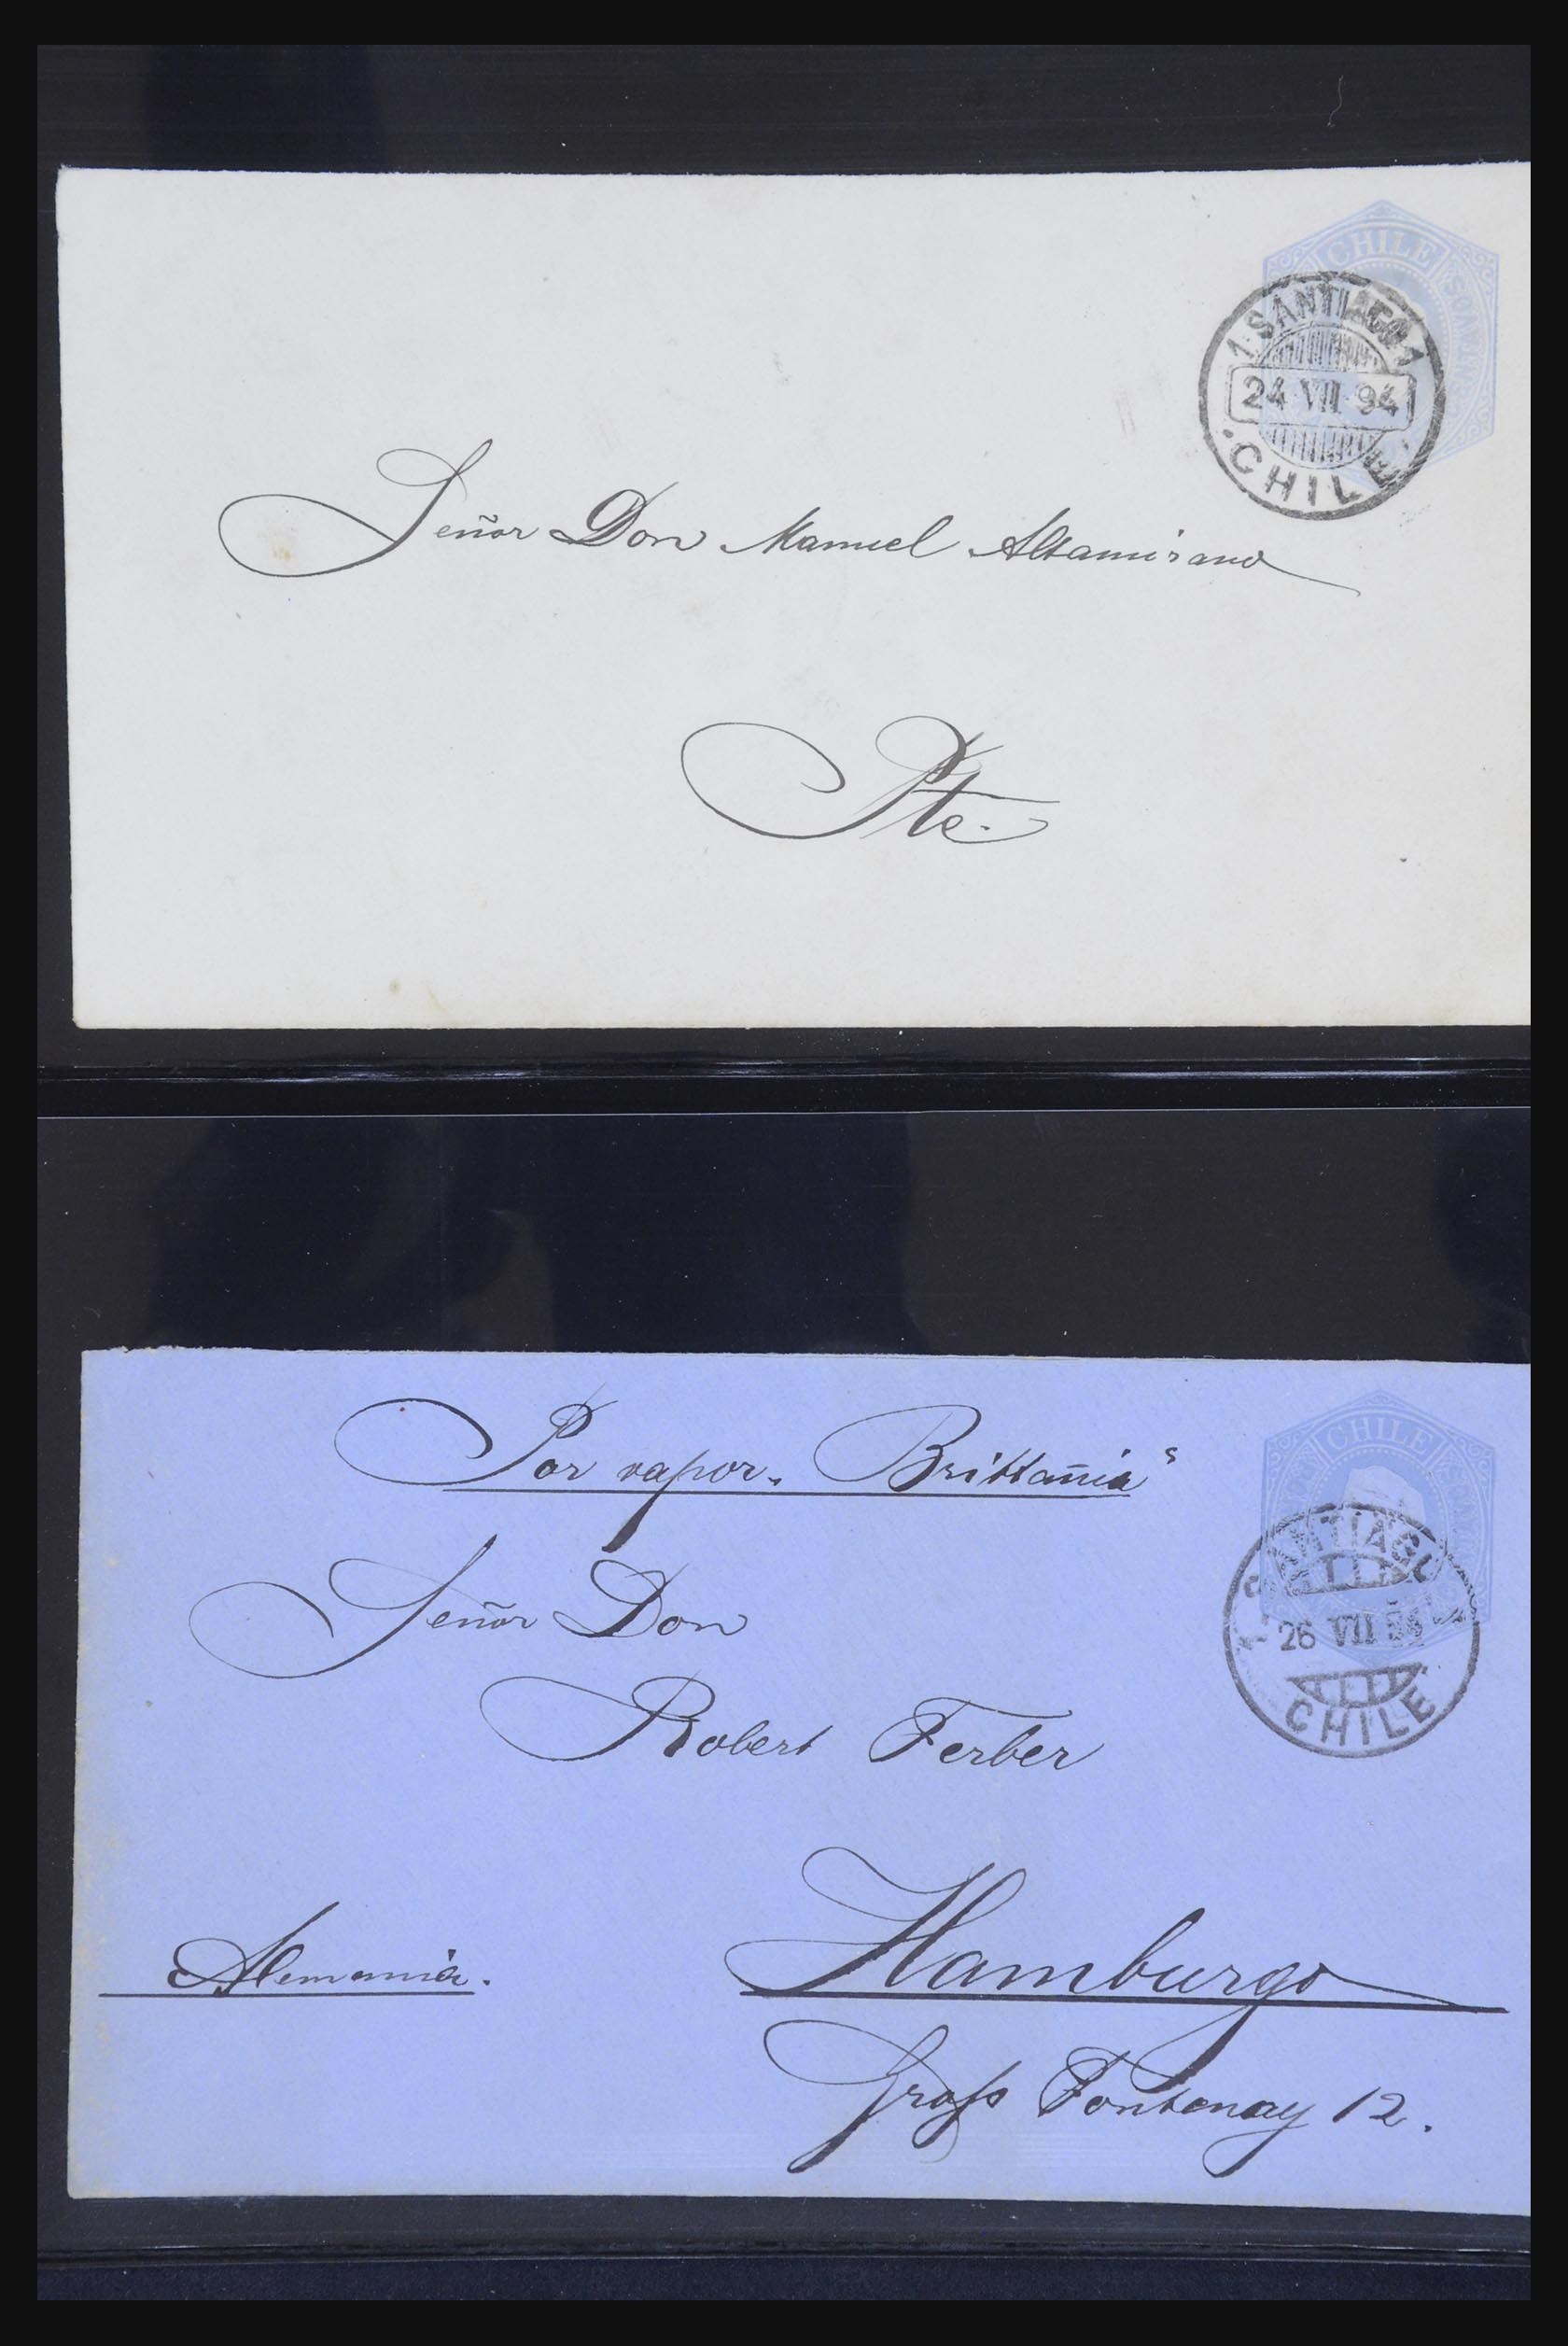 CHILE
1 SANTIAGO 1
24 VII 94
CHILE
Señor Don Manuel Altamirano
Pte.
Por vapor „Brittannia“
CHILE
SANTIAGO
26 VII 94
CHILE
Señor Don
Robert Ferber
Alemania.
Hamburgo
Groſs Fontenay 12.